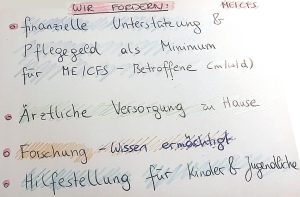 WIR FORDERN: ME/CFS
finanzielle Unterstützung &
Pflegegeld als Minimum
für ME/CFS - Betroffene (m/w/d)
Ärztliche Versorgung zu Hause
Forschung - Wissen ermächtigt
Hilfestellung für Kinder & Jugendliche